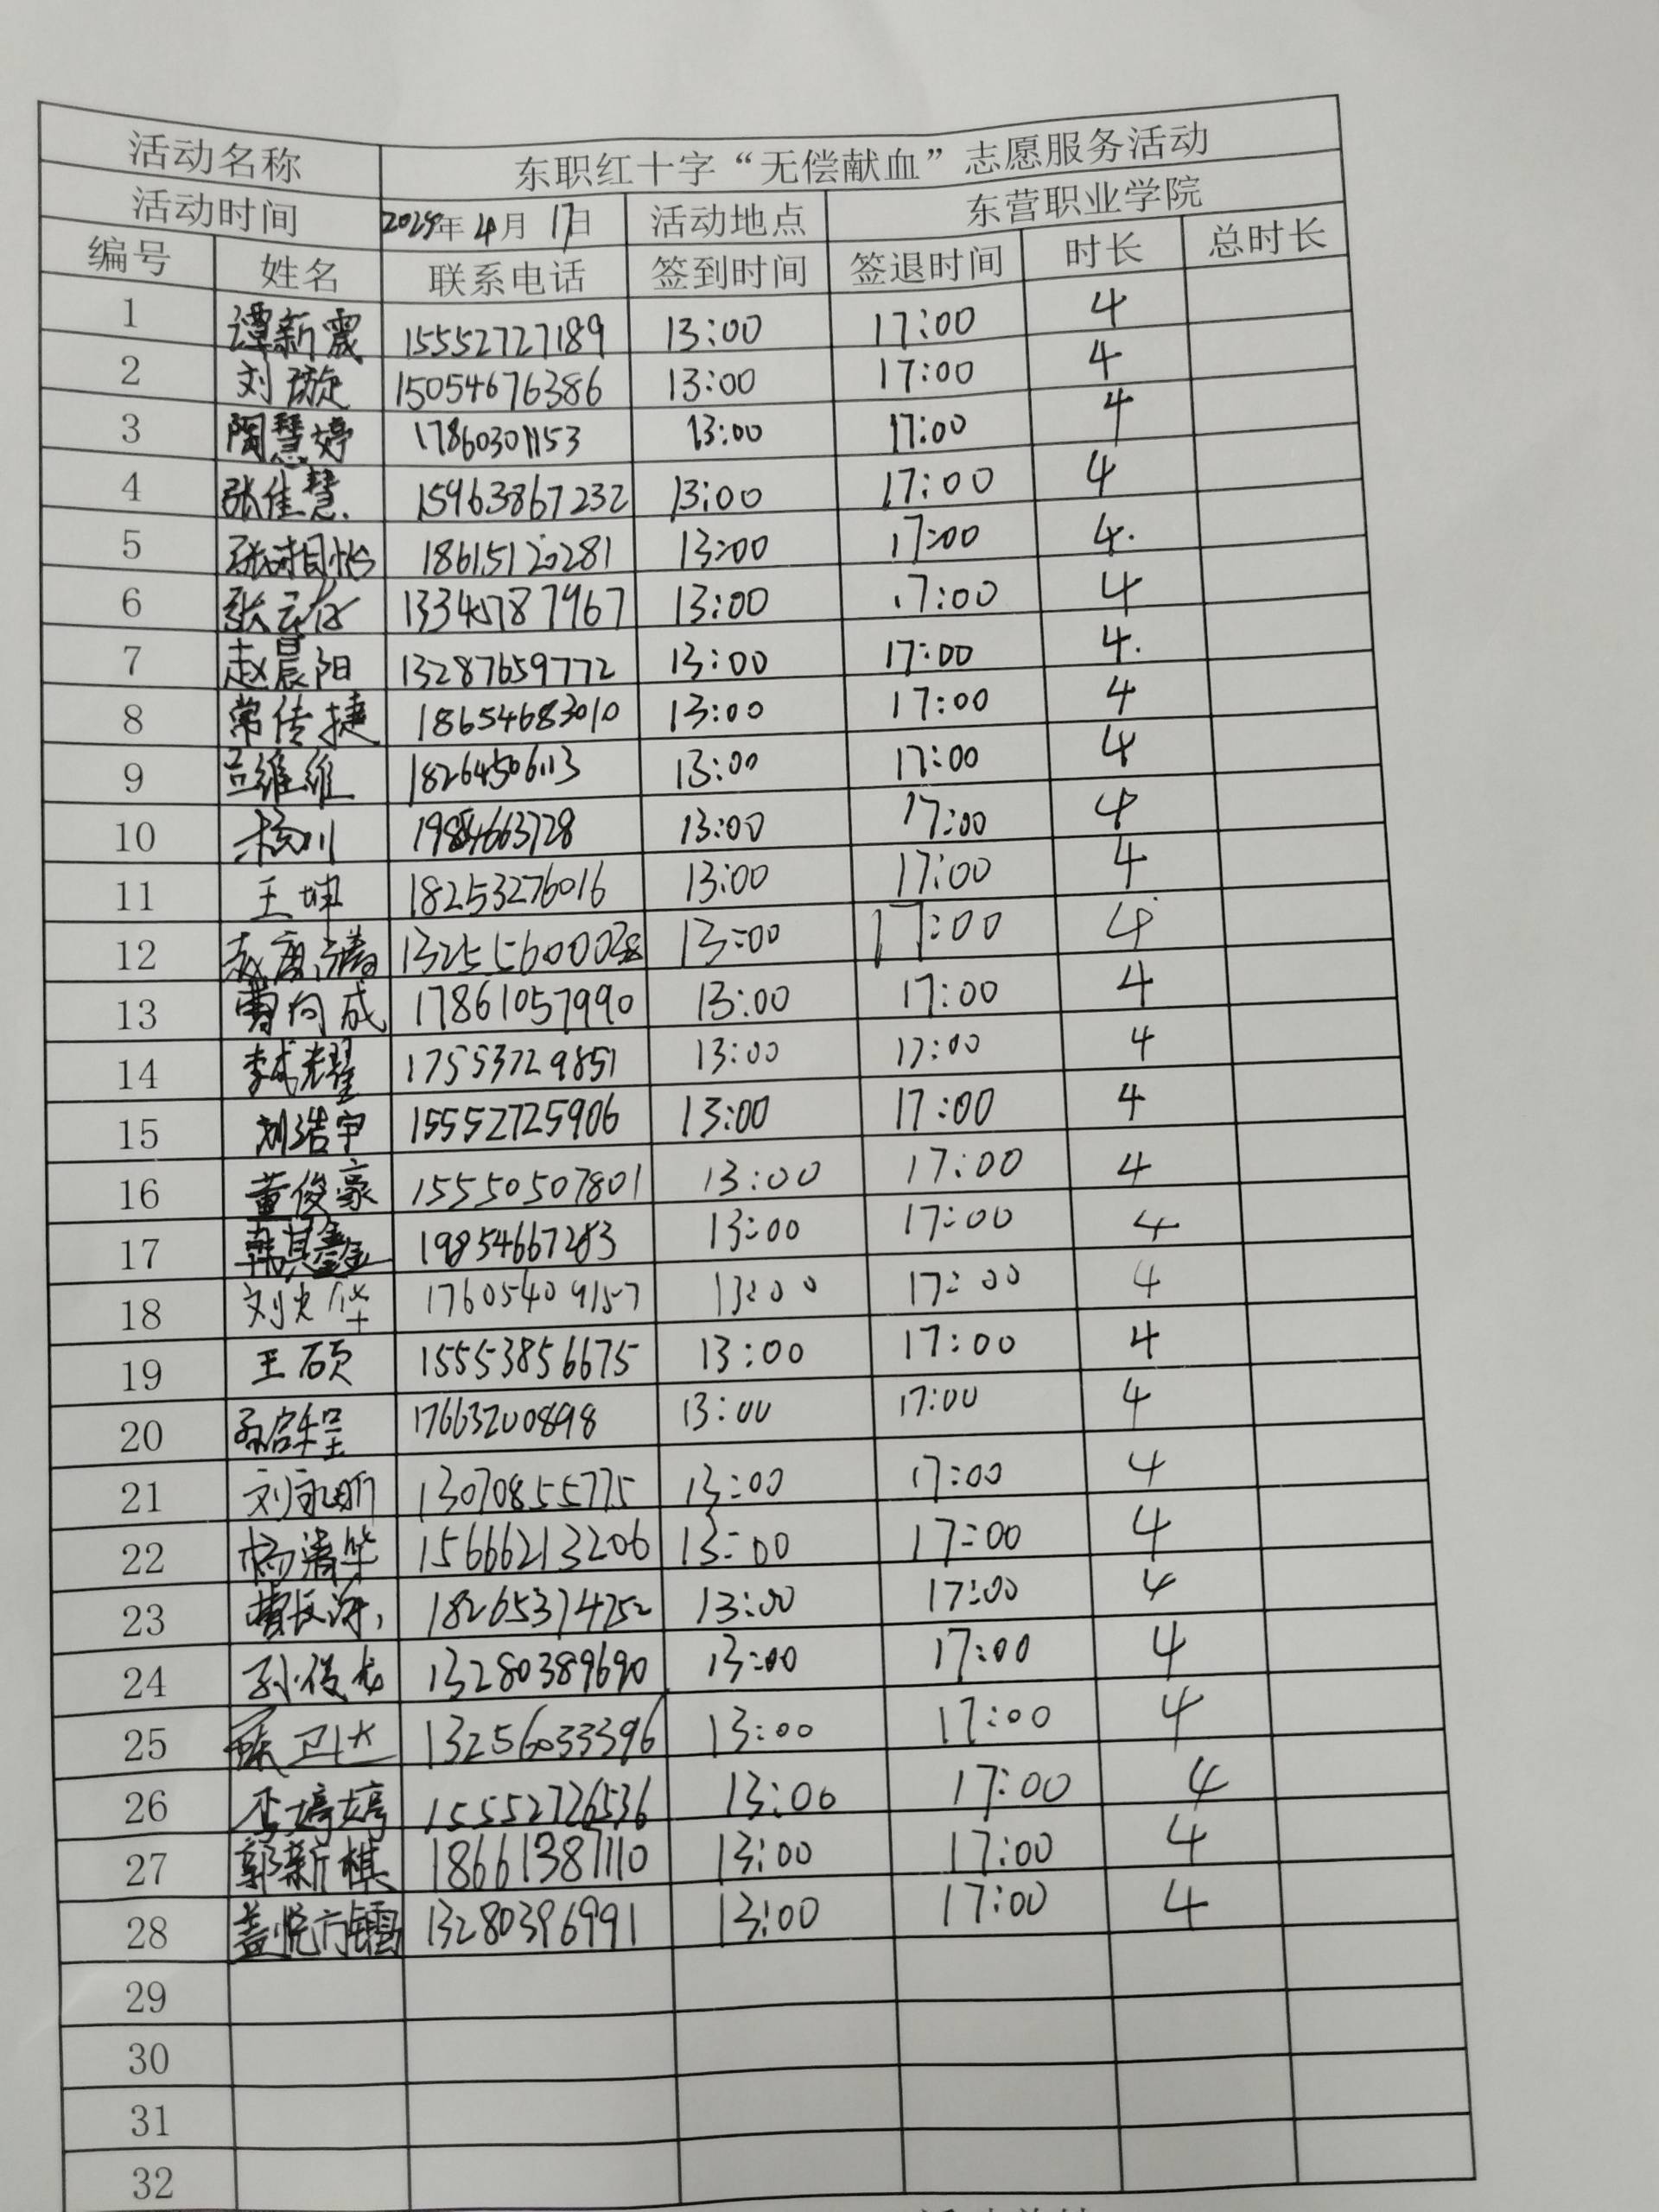 活动名称 东职红十字“无偿献血”志愿服务活动
活动时间 2024年 4月 17日 活动地点 东营职业学院
编号 姓名 联系电话 签到时间 签退时间 时长 总时长
1 谭新震 15552727189 13:00 17:00 4
2 刘璇 15054676386 13:00 17:00 4
3 陶慧婷 17860301153 13:00 17:00 4
4 张佳慧 15963867232 13:00 17:00 4
5 18615120281 13:00 17:00 4
6 13:00 17:00 4
7 赵晨阳 13287659772 13:00 17:00 4
8 常传捷 18654683010 13:00 17:00 4
9 吕维维 18264506113 13:00 17:00 4
10 杨川 13:00 17:00 4
11 王坤 18253276016 13:00 17:00 4
12 13:00 17:00 4
13 曹向成 17861057990 13:00 17:00 4
14 17553729851 13:00 17:00 4
15 刘浩宇 15552725906 13:00 17:00 4
16 董俊豪 15550507801 13:00 17:00 4
17 韩其鑫 19854667283 13:00 17:00 4
18 17605409157 13:00 17:00 4
19 王硕 15553856675 13:00 17:00 4
20 17663200898 13:00 17:00 4
21 13070855775 13:00 17:00 4
22 杨清华 15666213206 13:00 17:00 4
23 18265374752 13:00 17:00 4
24 孙俊龙 13280389690 13:00 17:00 4
25 13256033396 13:00 17:00 4
26 15552726536 13:00 17:00 4
27 郭新棋 18661387110 13:00 17:00 4
28 13280396991 13:00 17:00 4
29
30
31
32